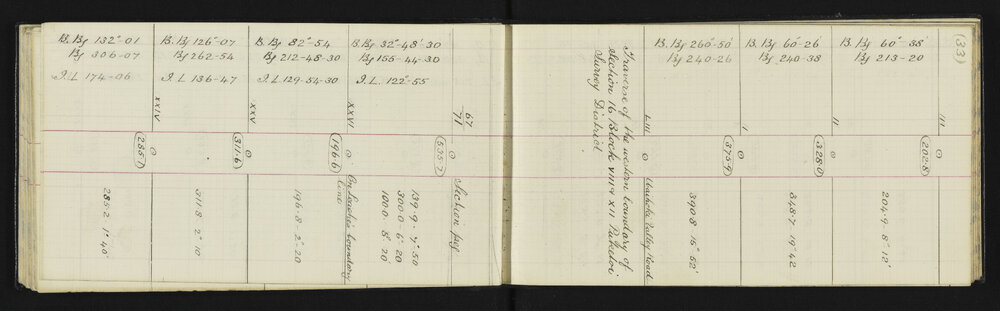 B. Bg 132°-01
Bg 306-07
I. L 174-06
B. Bg 126°-07
Bg 262-54
I. L 136-47
B. Bg 82°-54
Bg 212-48-30
I L 129-54-30
B. Bg 32°-48'-30
Bg 155-44-30
I. L. 122°-55
XXIV
XXV
XXVI
67
71
285.7
311.6
196.6
535.7
285.2 1° 40'
311.8 2° 10
196.8 - 2° - 20
On boundary
line
139.9. 4° 50
300.0 - 6° 20
100.0. 8° 20'
Section peg
Traverse of the western boundary of
Section 16 Block VIII & XII
Survey District
B. Bg 260°-50'
Bg 240-26
B. Bg 60°-26
Bg 240-38
B. Bg 60°-38'
Bg 213-20
(33)
LIII
I
II
III
375.9
328.0
202.8
Valley Road
390.8 15° 52'
348.7 19° 42
204.9. 8° 12'